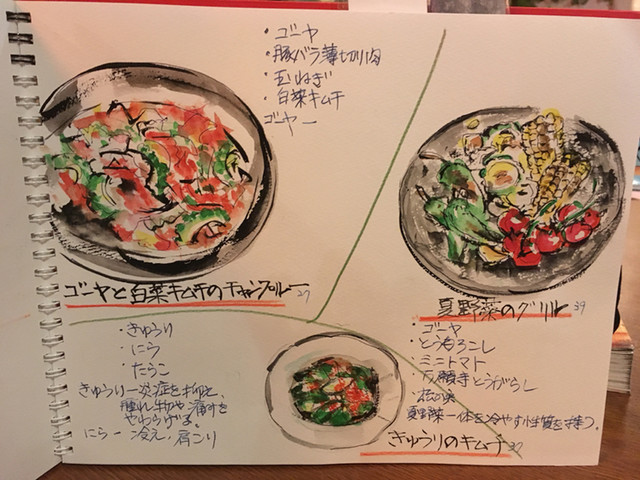 ・ゴーヤ
・豚バラ薄切り肉
・玉ねぎ
・白菜キムチ
ゴーヤー
ゴーヤと白菜キムチのチャンプルー 27
夏野菜のグリル 39
・ゴーヤ
・とうもろこし
・ミニトマト
・万願寺とうがらし
・松の実
夏野菜ー体を冷やす性質を持つ。
・きゅうり
・にら
・たらこ
きゅうりー炎症を抑え、
腫れ物や痛みを
やわらげる。
にらー冷え、肩こり
きゅうりのキムチ